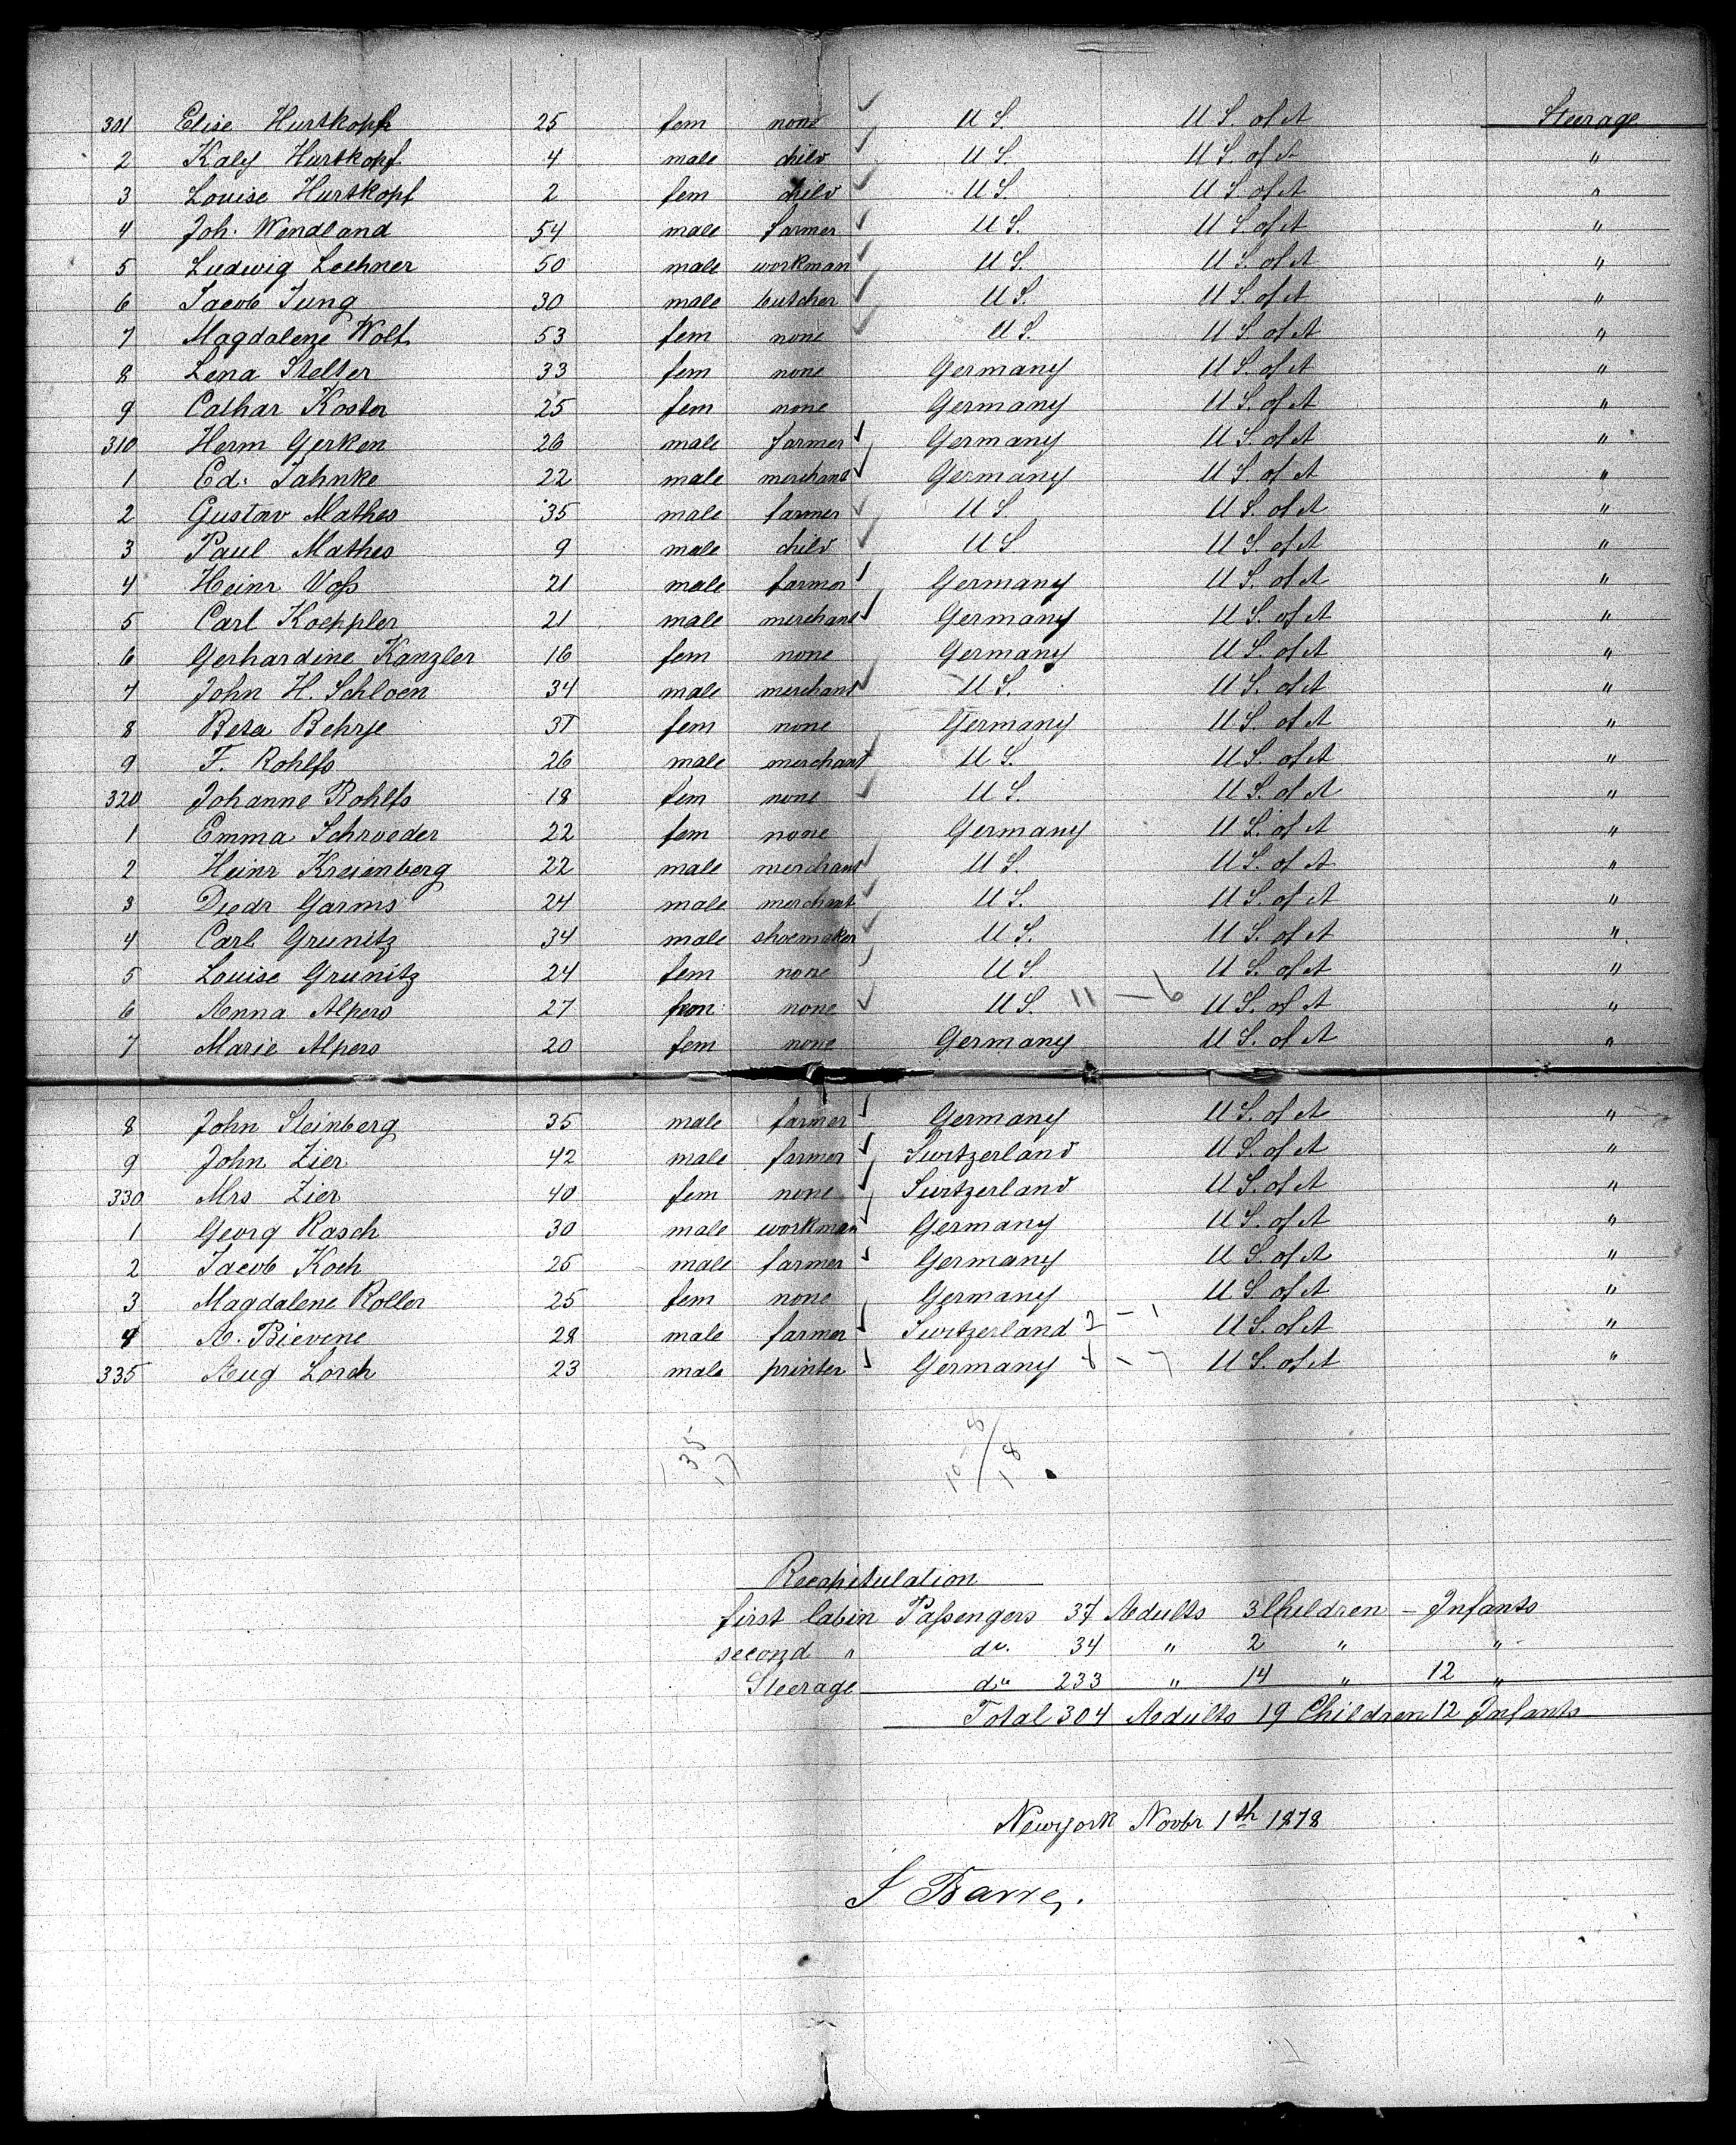 301 Elise Hurtkopf 25 fem none U S. U S. of A Steerage
2 Kaly Hurtkopf 4 male child U S. U S. of A "
3 Louise Hurtkopf 2 fem child U S. U S. of A "
4 Joh. Wendland 54 male farmer U S. U S. of A "
5 Ludwig Lechner 50 male workman U S. U S. of A "
6 Jacob Jung 30 male butcher U S. U S. of A "
7 Magdalene Wolf 53 fem none U S. U S. of A "
8 Lena Stelter 33 fem none Germany U S. of A "
9 Cathar Koster 25 fem none Germany U S. of A "
310 Herm Gerken 26 male farmer Germany U S. of A "
1 Ed. Jahnke 22 male merchant Germany U S. of A "
2 Gustav Mathes 35 male farmer U S. U S. of A "
3 Paul Mathes 9 male child U S U S. of A "
4 Heinr Voß 21 male farmer Germany U S. of A "
5 Carl Koeppler 21 male merchant Germany U S. of A "
6 Gerhardine Kanzler 16 fem none Germany U S. of A "
7 John H. Schloen 34 male merchant U S. U S. of A "
8 Beta Behrje 31 fem none Germany U S. of A "
9 F. Rohlfs 26 male merchant U S. U S. of A "
320 Johanne Rohlfs 18 fem none U S. U S. of A "
1 Emma Schroeder 22 fem none Germany U S. of A "
2 Heinr Kreienberg 22 male merchant U S. U S. of A "
3 Diedr Garms 24 male merchant U S. U S. of A "
4 Carl Grunitz 34 male shoemaker U S. U S. of A "
5 Louise Grunitz 24 fem none U S. U S. of A "
6 Anna Alpers 27 fem none U S. 11 - 6 U S. of A "
7 Marie Alpers 20 fem none Germany U S. of A "
8 John Steinberg 35 male farmer Germany U S. of A "
9 John Zier 42 male farmer Switzerland U S. of A "
330 Mrs Zier 40 fem none Switzerland U S. of A "
1 Georg Rasch 30 male workman Germany U S. of A "
2 Jacob Koch 25 male farmer Germany U S. of A "
3 Magdalene Roller 25 fem none Germany U S. of A "
4 A. Bievene 28 male farmer Switzerland 2 - 1 U S. of A "
335 Aug Lorch 23 male printer Germany 8 - 7 U S. of A "
35 10 - 8
17 18
Recapitulation
first Cabin Paßengers 37 Adults 3 Children - Infants
second " do. 34 " 2 " "
Steerage do 233 " 14 " 12 "
Total 304 Adults 19 Children 12 Infants
Newyork Novbr 1th 1878
S Barre.